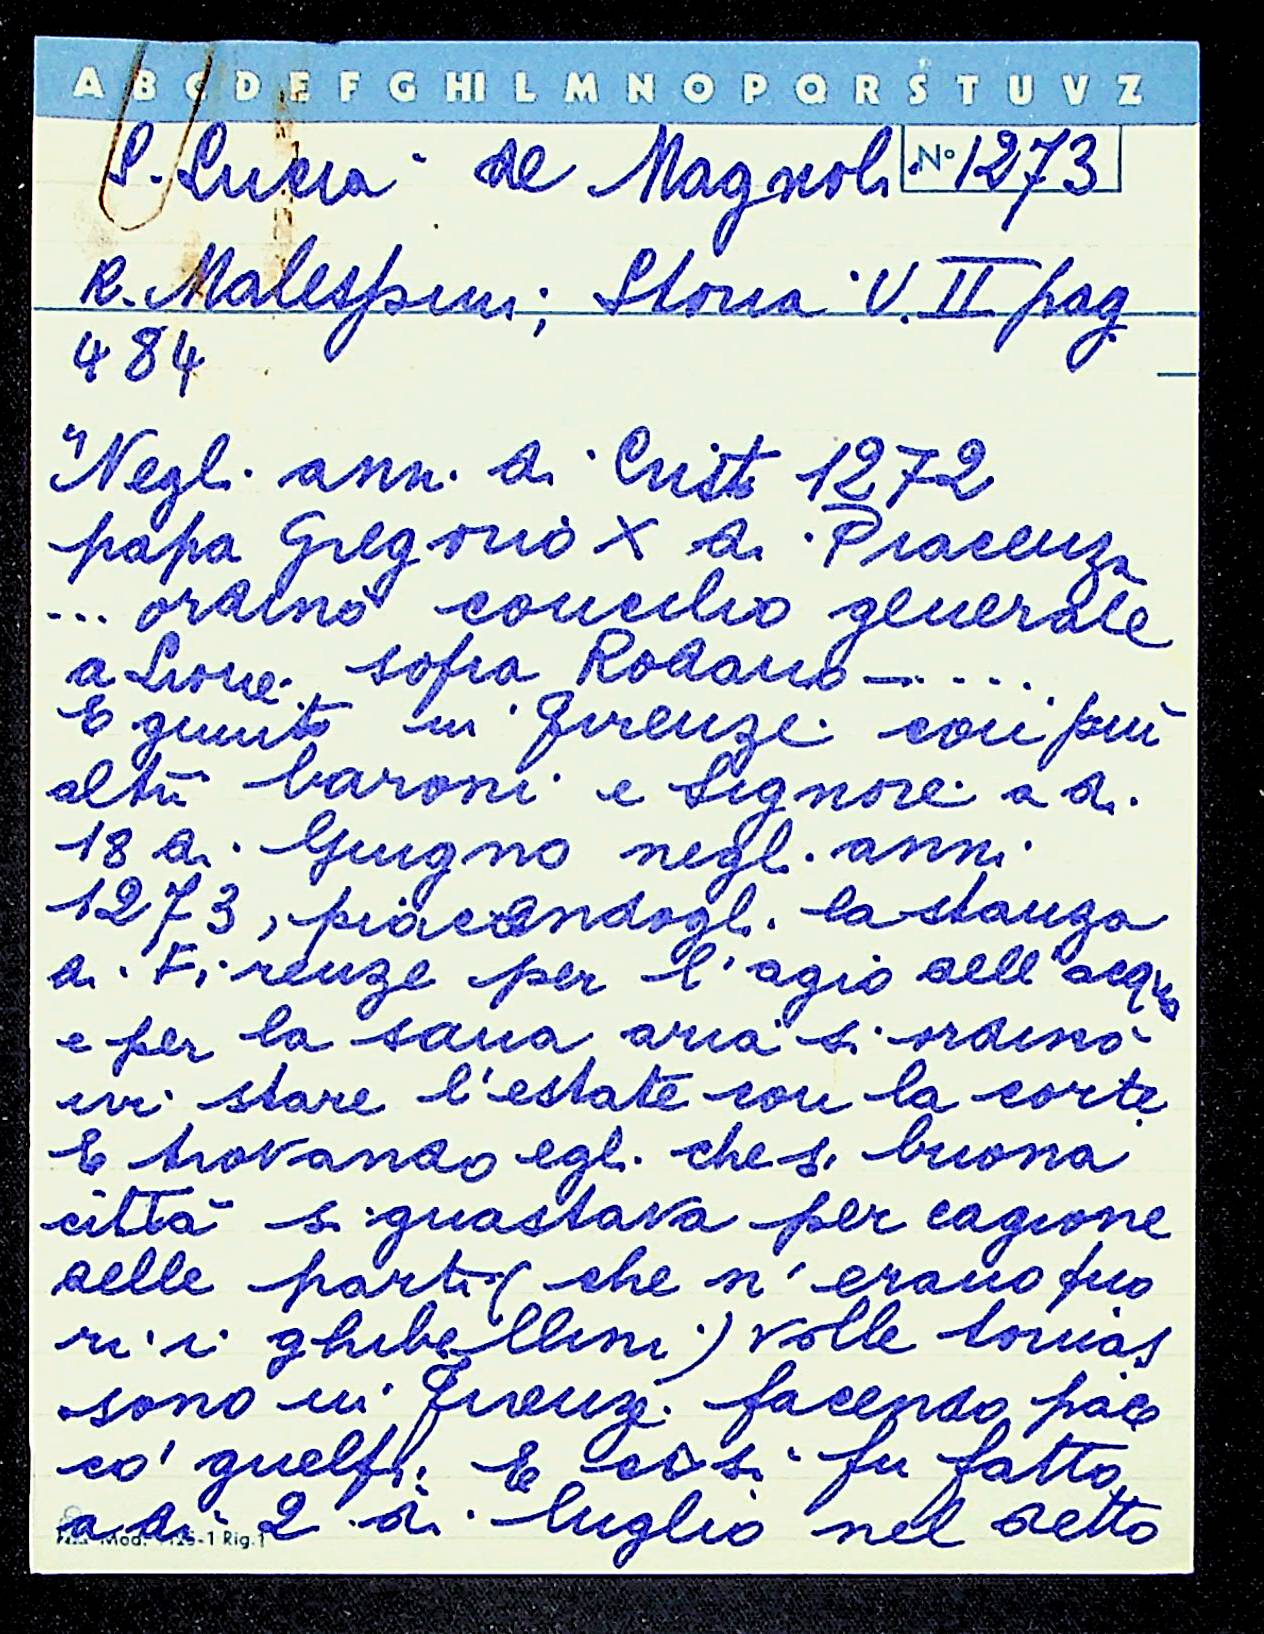 A B C D E F G HI L M N O P Q R S T U V Z
S. Lucia de Magnoli No 1273
R. Malespini; Storia V. II pag
484
"Negli anni di Cristo 1272
papa Gregorio X di Piacenza
... ordinò concilio generale
a Lione sopra Rodano - .....
E giunto in Firenze con più
altri baroni e signore a di
18 di Giugno negli anni
1273, piacendogli la stanza
di Firenze per l'agio dell'acqua
e per la sana aria si ordinò
ivi stare l'estate con la corte.
E trovando egli che si buona
città si guastava per cagione
delle parti (che n'erano fuo
ri i ghibellini) volle tornas
sono in Firenze facendo pace
co' guelfi: E così fu fatto,
a di 2 di luglio nel detto
Mod. -1 Rig.1